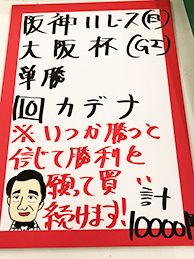 阪神11レース(日)
大阪杯(GI)
単勝
10 カデナ
※いつか勝つと
信じて勝利を
願って買い
続けます!
計
10000円